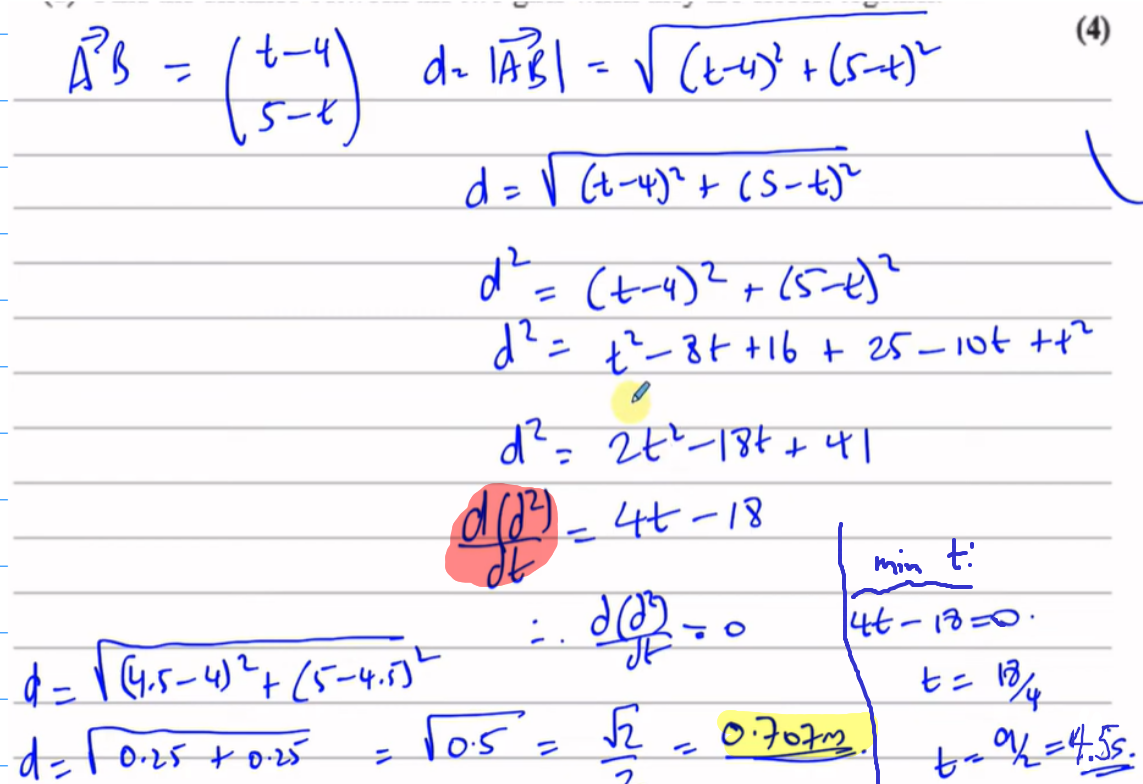 (4)
A⃗B = (t-4 / 5-t) d = |A⃗B| = √((t-4)² + (5-t)²)
d = √((t-4)² + (5-t)²)
d² = (t-4)² + (5-t)²
d² = t² - 8t + 16 + 25 - 10t + t²
d² = 2t² - 18t + 41
d(d²)/dt = 4t - 18
∴ d(d²)/dt = 0
min t:
4t - 18 = 0.
t = 18/4
t = 9/2 = 4.5s.
d = √((4.5-4)² + (5-4.5)²)
d = √(0.25 + 0.25) = √0.5 = √2/2 = 0.707m.